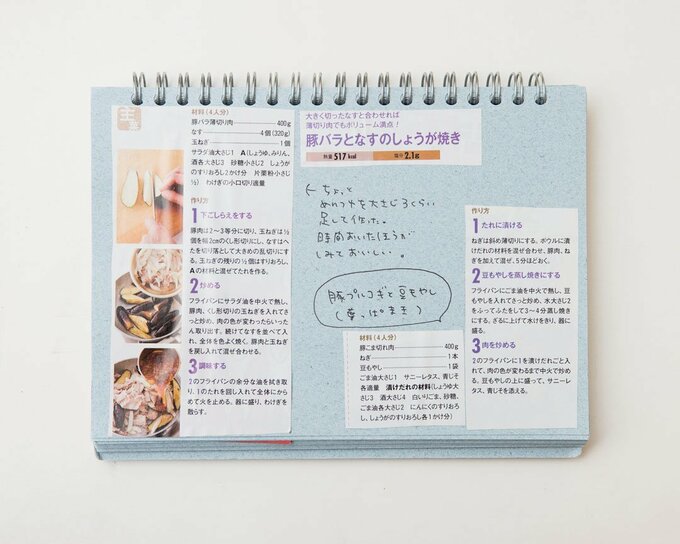 主菜
材料(4人分)
豚バラ薄切り肉 400g
なす 4個(320g)
玉ねぎ 1個
サラダ油大さじ1 A(しょうゆ、みりん、
酒各大さじ3 砂糖小さじ2 しょうが
のすりおろし2かけ分 片栗粉小さじ
½) わけぎの小口切り適量
作り方
1 下ごしらえをする
豚肉は2〜3等分に切り、玉ねぎは½
個を幅2cmのくし形切りにし、なすはへ
たを切り落として大きめの乱切りにす
る。玉ねぎの残りの½個はすりおろし、
Aの材料と混ぜてたれを作る。
2 炒める
フライパンにサラダ油を中火で熱し、
豚肉、くし形切りの玉ねぎを入れてさ
っと炒め、肉の色が変わったらいった
ん取り出す。続けてなすを並べて入
れ、全体を色よく焼く。豚肉と玉ねぎ
を戻し入れて混ぜ合わせる。
3 調味する
2のフライパンの余分な油を拭き取
り、1のたれを回し入れて全体にから
めて火を止める。器に盛り、わけぎを
散らす。
大きく切ったなすと合わせれば
薄切り肉でもボリューム満点!
豚バラとなすのしょうが焼き
熱量 517kcal 塩分 2.1g
ちょっと
めんつゆを大さじ3くらい
足して作った。
時間おいたほうが
しみておいしい。
豚プルコギと豆もやし
材料(4人分)
豚こま切れ肉 400g
ねぎ 1本
豆もやし 1袋
ごま油大さじ1 サニーレタス、青じそ
各適量 漬けだれの材料(しょうゆ大
さじ3 酒大さじ4 白いりごま、砂糖、
ごま油各大さじ2 にんにくのすりおろ
し、しょうがのすりおろし各1かけ分)
作り方
1 たれに漬ける
ねぎは斜め薄切りにする。ボウルに漬
けだれの材料を混ぜ合わせ、豚肉、ね
ぎを加えて混ぜ、5分ほどおく。
2 豆もやしを蒸し焼きにする
フライパンにごま油を中火で熱し、豆
もやしを入れてさっと炒め、水大さじ2
をふってふたをして3〜4分蒸し焼き
にする。ざるに上げて水けをきり、器に
盛る。
3 肉を炒める
2のフライパンに1を漬けだれごと入
れて、肉の色が変わるまで中火で炒め
る。豆もやしの上に盛って、サニーレ
タス、青じそを添える。